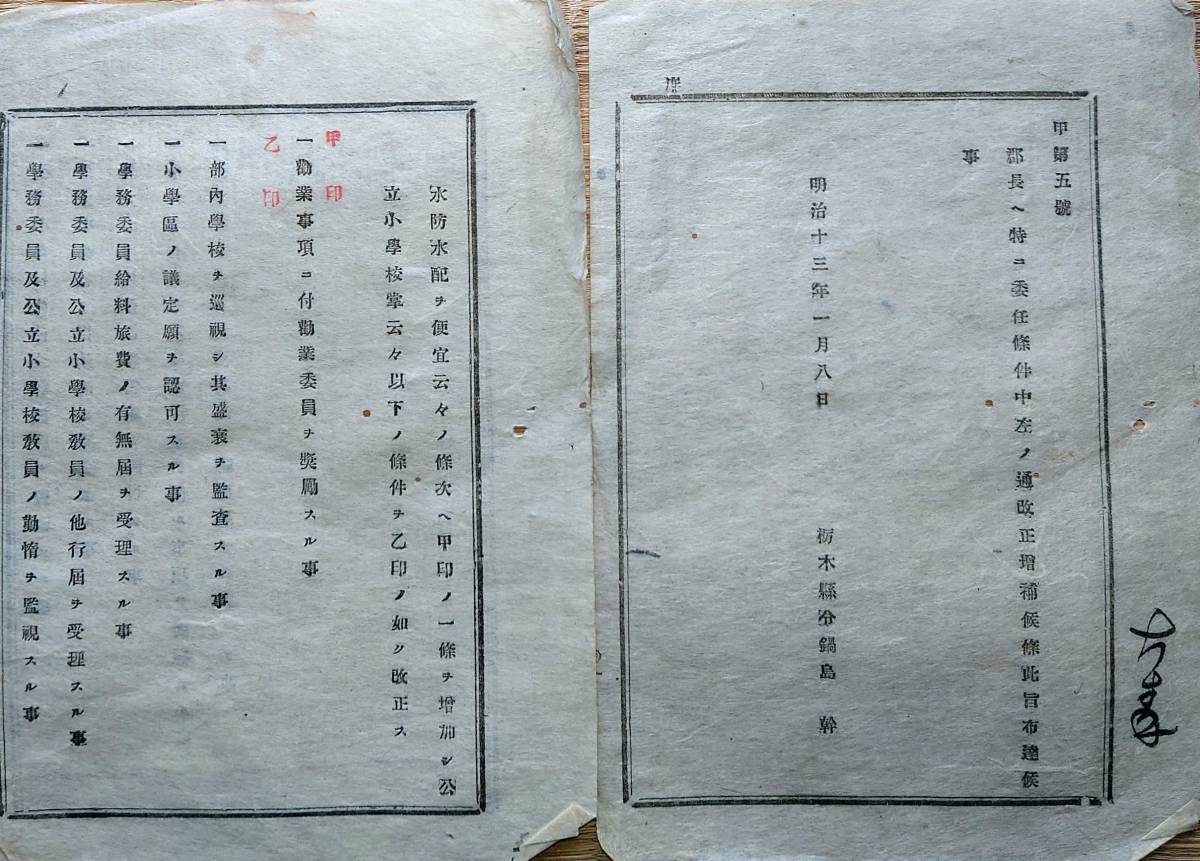 甲第五號
郡長ヘ特ニ委任條件中左ノ通改正增補候條此旨布達候
事
明治十三年一月八日
栃木縣令鍋島 幹
水防水配ヲ便宜云々ノ條次ヘ甲印ノ一條ヲ增加シ公
立小學校掌云々以下ノ條件ヲ乙印ノ如ク改正ス
甲印
一勸業事項ニ付勸業委員ヲ奬勵スル事
乙印
一部內學校ヲ巡視シ其盛衰ヲ監査スル事
一小學區ノ議定願ヲ認可スル事
一學務委員給料旅費ノ有無屆ヲ受理スル事
一學務委員及公立小學校敎員ノ他行屆ヲ受理スル事
一學務委員及公立小學校敎員ノ勤惰ヲ監視スル事